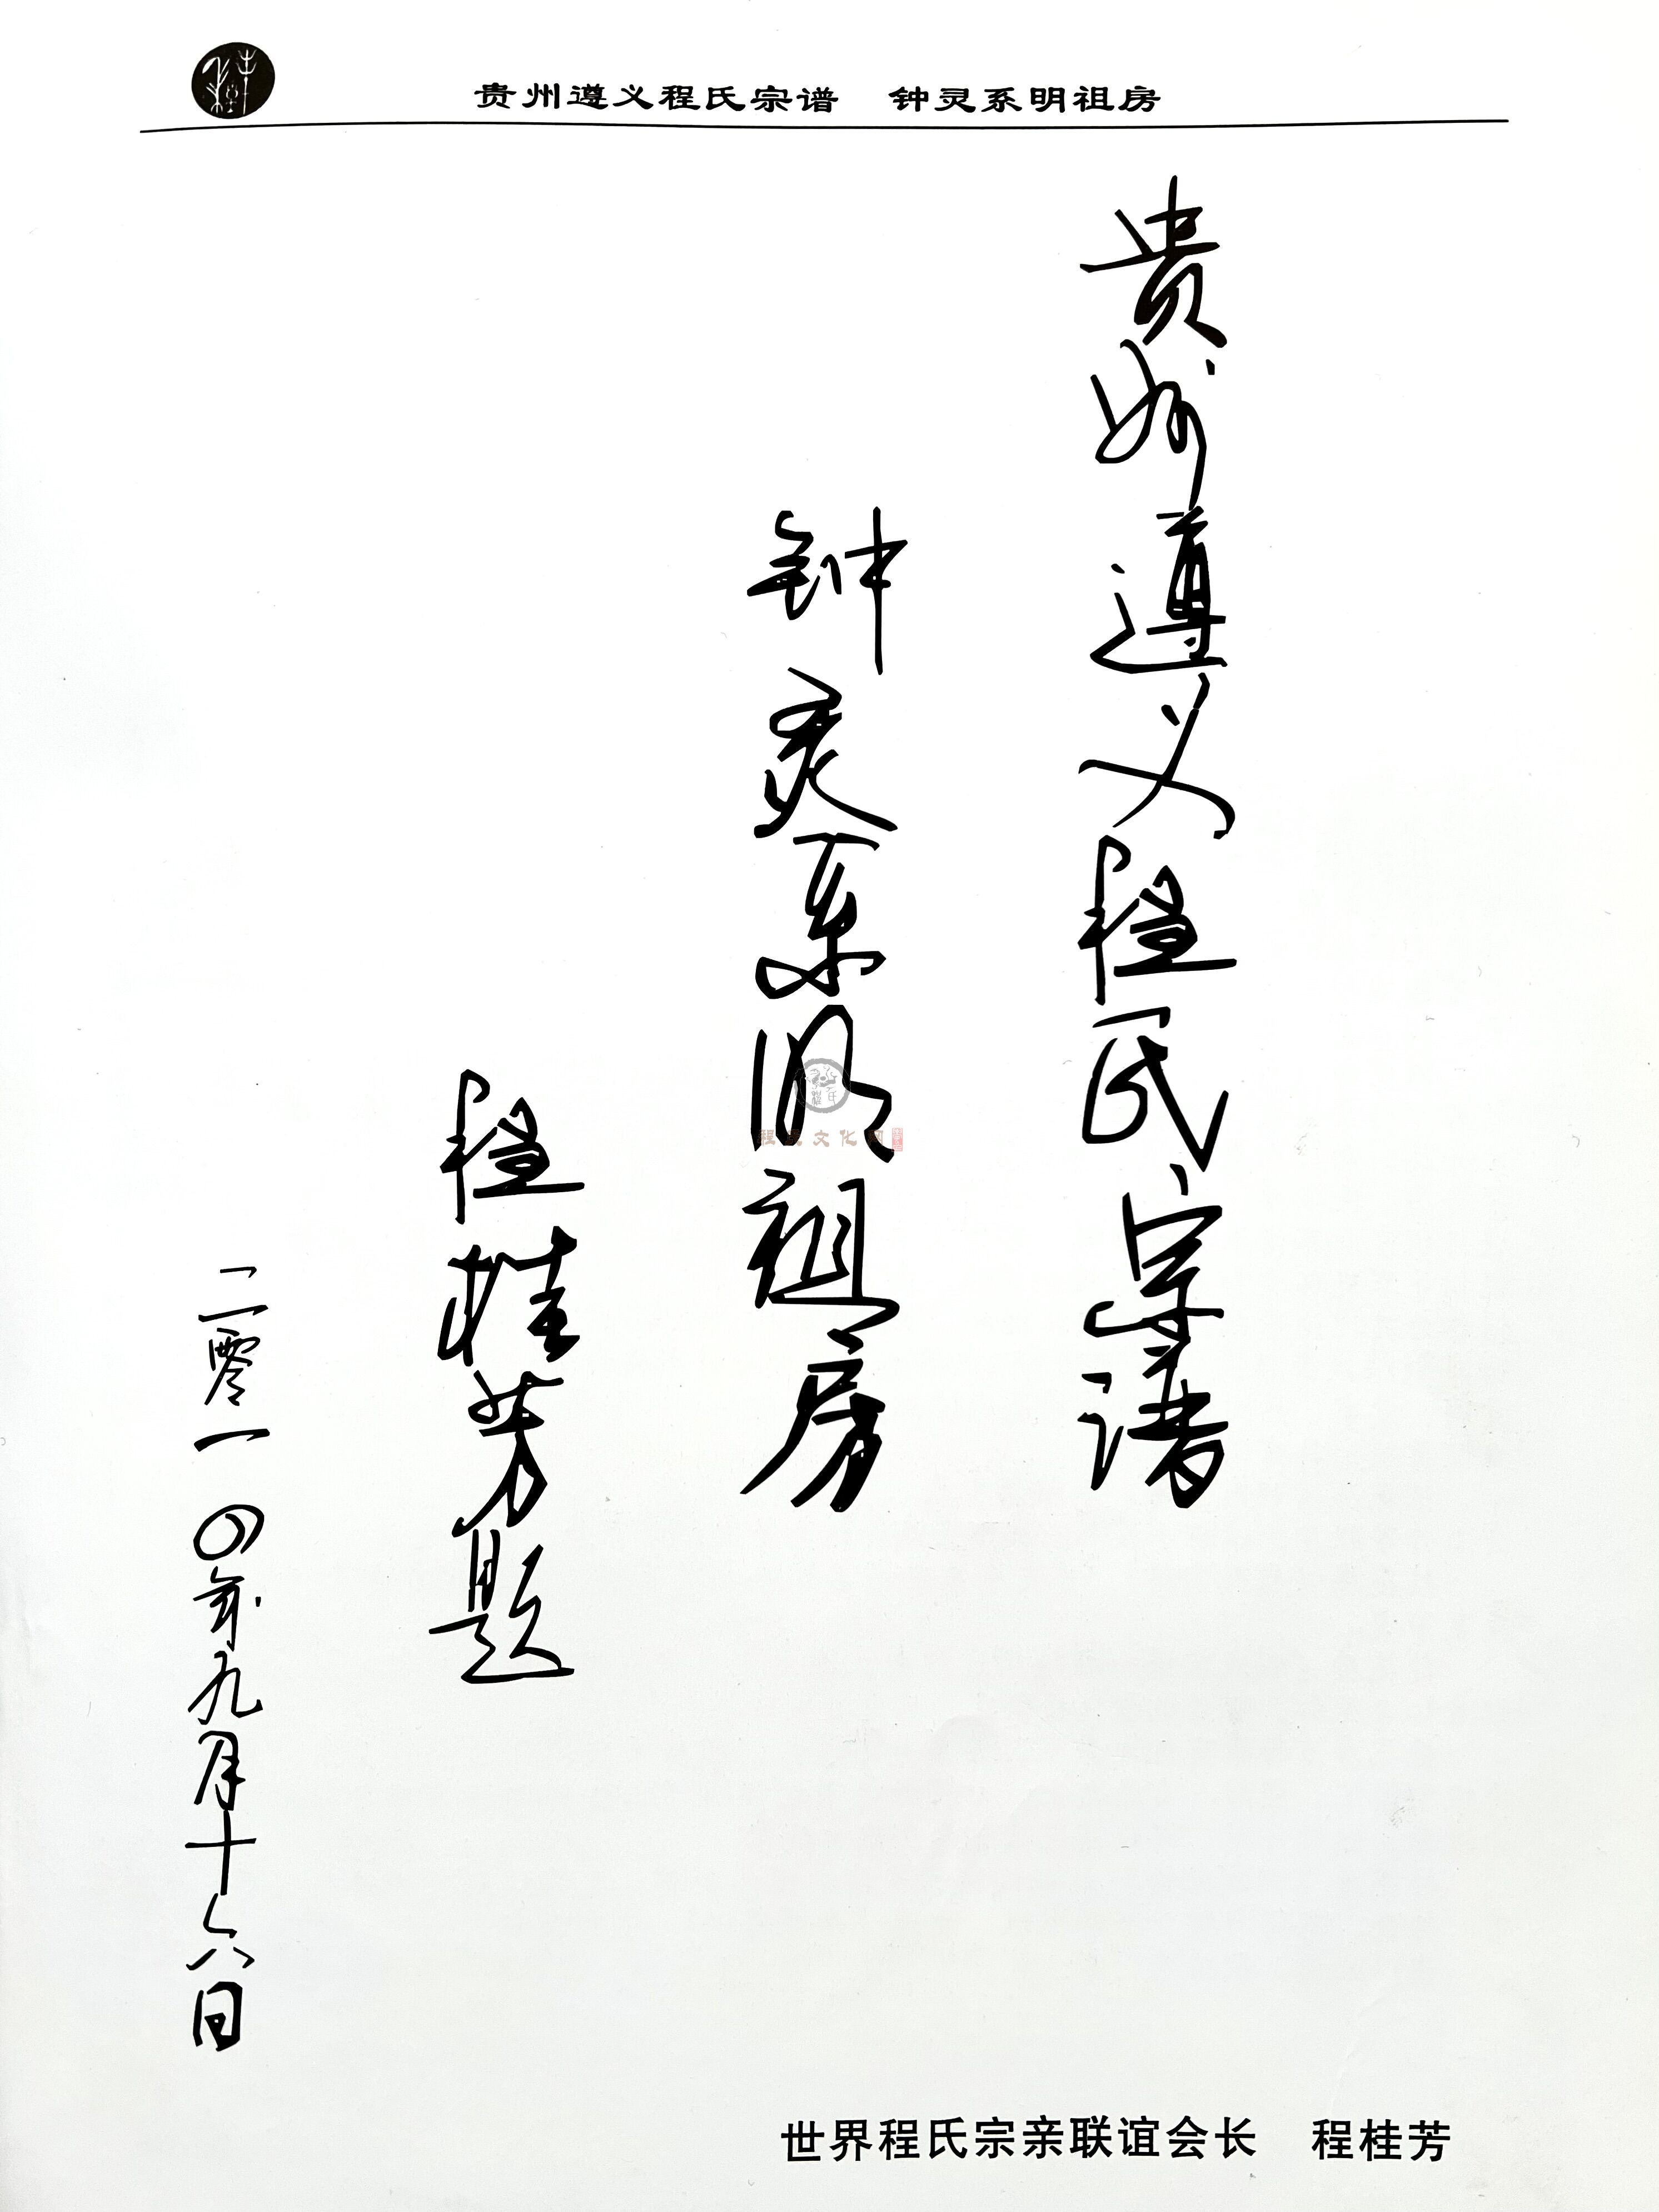 贵州遵义程氏宗谱　钟灵系明祖房
贵州遵义程氏宗谱
钟灵系明祖房
程桂芳题
二零一〇年九月十六日
程氏文化网
世界程氏宗亲联谊会长　程桂芳